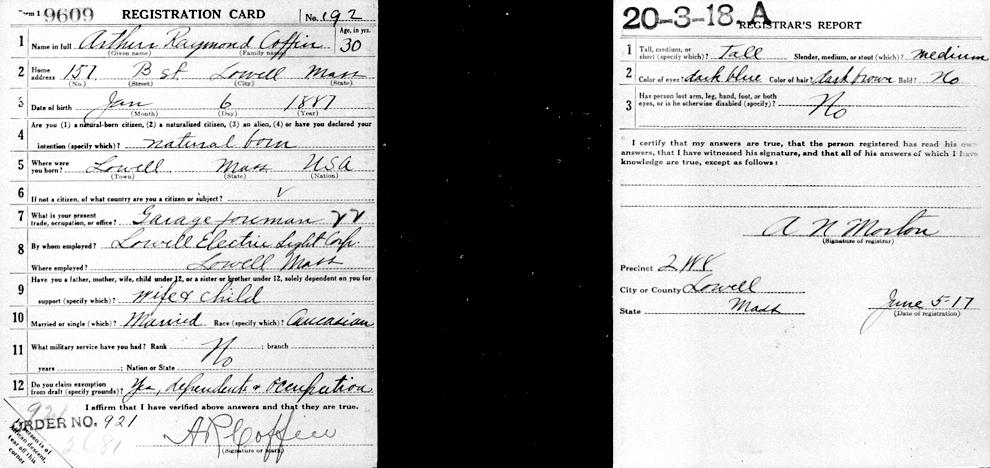 Form 1 9609 REGISTRATION CARD No. 192
1 Name in full Arthur Raymond Coffin Age, in yrs. 30
(Given name) (Family name)
2 Home address 157 B St. Lowell Mass
(No.) (Street) (City) (State)
3 Date of birth Jan 6 1887
(Month) (Day) (Year)
4 Are you (1) a natural-born citizen, (2) a naturalized citizen, (3) an alien, (4) or have you declared your
intention (specify which)? natural born
5 Where were you born? Lowell Mass USA
(Town) (State) (Nation)
6 If not a citizen, of what country are you a citizen or subject?
7 What is your present trade, occupation, or office? Garage foreman
8 By whom employed? Lowell Electric Light Corp.
Where employed? Lowell Mass
9 Have you a father, mother, wife, child under 12, or a sister or brother under 12, solely dependent on you for
support (specify which)? Wife & child
10 Married or single (which)? Married Race (specify which)? Caucasian
11 What military service have you had? Rank No ; branch ;
years ; Nation or State
12 Do you claim exemption from draft (specify grounds)? Yes, dependents & Occupation
I affirm that I have verified above answers and that they are true.
921
ORDER NO. 921
2681
A R Coffin
(Signature or mark)
If person is of
African descent,
tear off this
corner
20-3-18. A
REGISTRAR'S REPORT
1 Tall, medium, or short (specify which)? Tall Slender, medium, or stout (which)? medium
2 Color of eyes? dark blue Color of hair? dark brown Bald? No
3 Has person lost arm, leg, hand, foot, or both eyes, or is he otherwise disabled (specify)? No
I certify that my answers are true, that the person registered has read his own
answers, that I have witnessed his signature, and that all of his answers of which I have
knowledge are true, except as follows:
A N Morton
(Signature of registrar)
Precinct 2 W 8
City or County Lowell
State Mass June 5-17
(Date of registration)